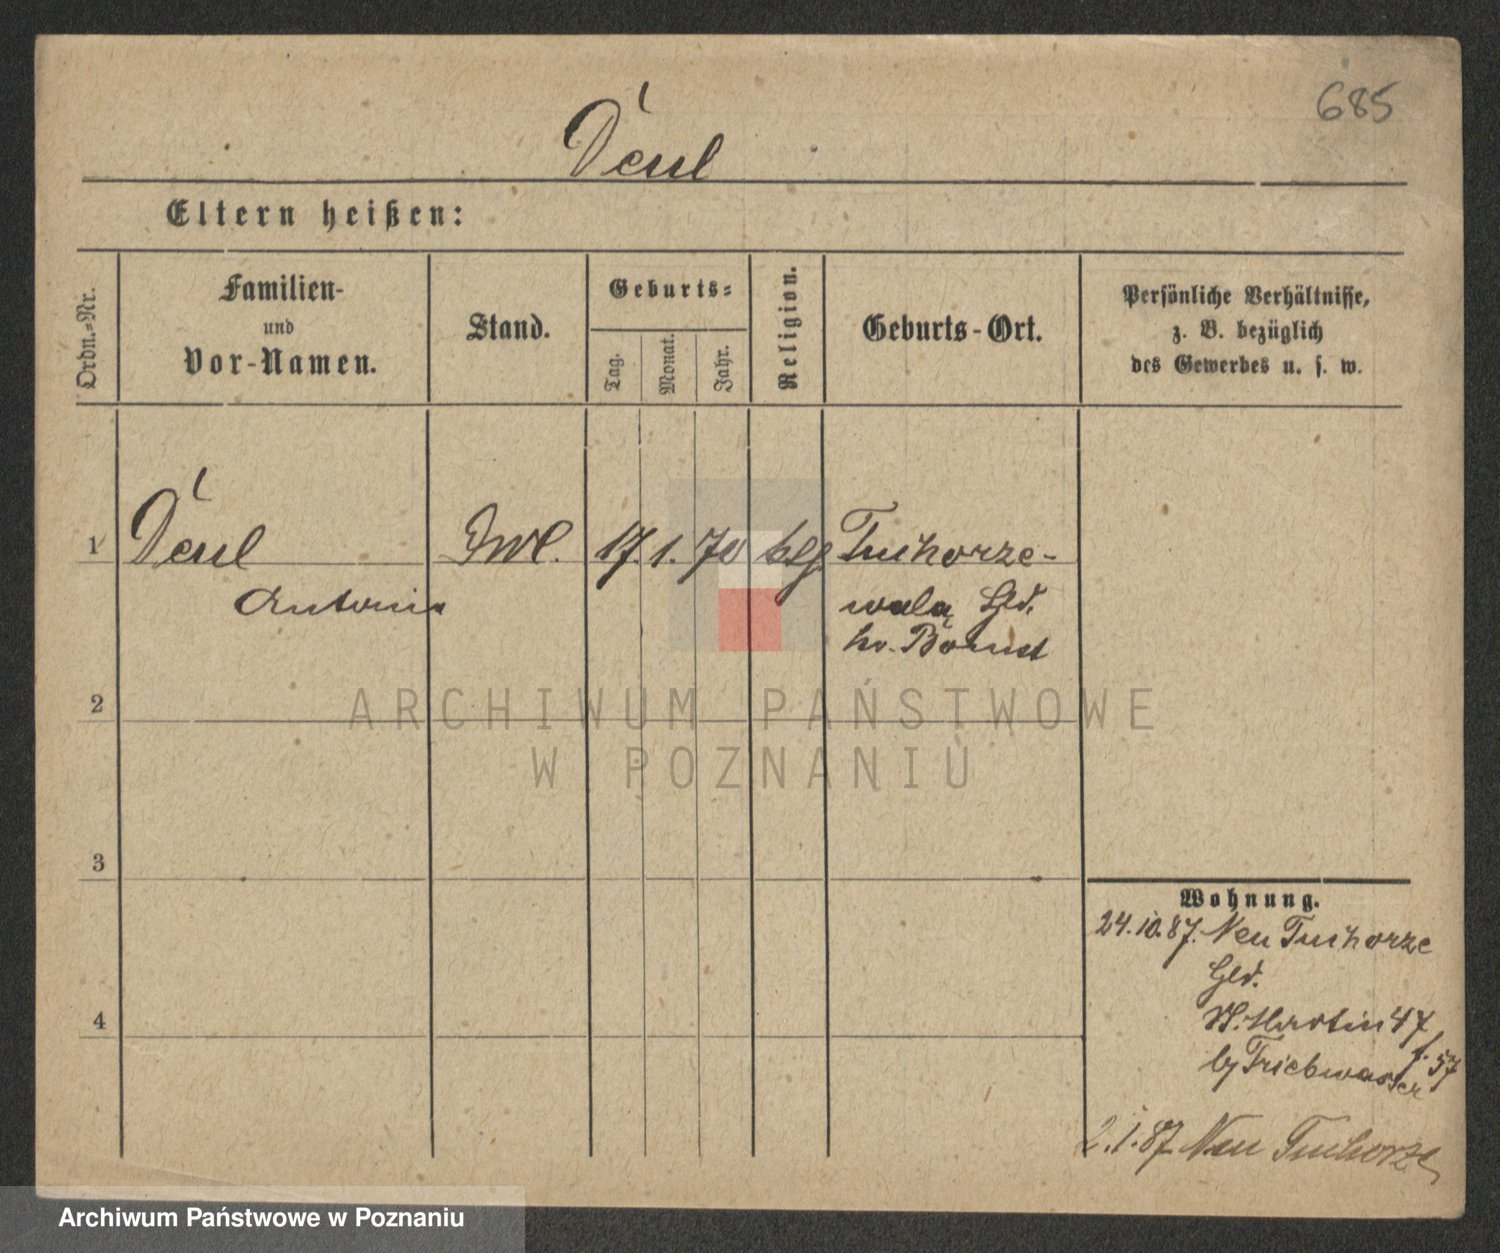 685
Deul
Eltern heißen:
Ordn.-Nr.
Familien-
und
Vor-Namen.
Stand.
Geburts-
Tag.
Monat.
Jahr.
Religion.
Geburts-Ort.
Persönliche Verhältnisse,
z. B. bezüglich
des Gewerbes u. s. w.
1 Deul 17. 1. 70 ktg. Tuchorze-
Antonie
hv. Bomst
2
3
4
Wohnung.
24.10.87. Neu Tuchorze
St. Martin 47
f. 57
by Triebwasser
2.1.87 Neu Tuchorze
ARCHIWUM PAŃSTWOWE
W POZNANIU
Archiwum Państwowe w Poznaniu